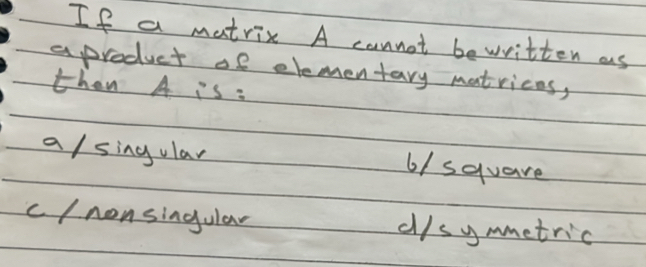 If a matrix A cannot be written as
a product of elementary matrices,
then A is:
a/ singular b/ square
c/ nonsingular d/ symmetric